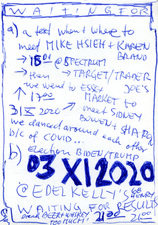 WAITING FOR
a) a text when & where to
meet MIKE HSIEH + KAREN
BRAND
→ 15 @ SPECTRUM
→ then → TARGET/TRADER
we went to ESSEX JOE'S
↑ 1700 MARKET TO
3/IX 2020 → meet SIDNEY
BOWEN/SHARO
we danced around each other
b/c of COVID..
b) election BIDEN/TRUMP
03 XI 2020
@ EDEL KELLY'S
WAITING FOR RESULTS
drank BEER + WHISKEY
TOO MUCH!